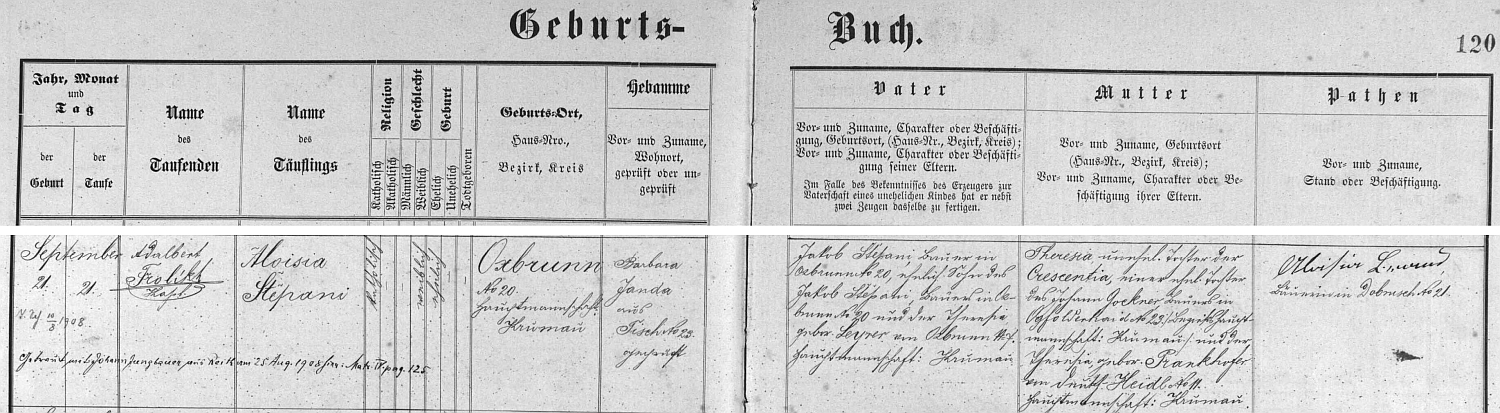 Geburts-
Buch.
120
Jahr, Monat
und
Tag
der
Geburt
der
Taufe
Name
des
Taufenden
Name
des
Täuflings
Religion
Katholisch
Akatholisch
Geschlecht
Männlich
Weiblich
Geburt
Ehelich
Unehelich
Todtgeboren
Geburts-Ort,
Haus-Nro.,
Bezirk, Kreis
Hebamme
Vor- und Zuname,
Wohnort,
geprüft oder un-
geprüft
Vater
Vor- und Zuname, Charakter oder Beschäfti-
gung, Geburtsort, (Haus-Nr., Bezirk, Kreis);
Vor- und Zuname, Charakter oder Beschäfti-
gung seiner Eltern.
Im Falle des Bekenntnisses des Erzeugers zur
Vaterschaft eines unehelichen Kindes hat er nebst
zwei Zeugen dasselbe zu fertigen.
Mutter
Vor- und Zuname, Geburtsort
(Haus-Nr., Bezirk, Kreis);
Vor- und Zuname, Charakter oder Be-
schäftigung ihrer Eltern.
Pathen
Vor- und Zuname,
Stand oder Beschäftigung.
September
21.
21.
10/3 1908
Adalbert
Frolikt
Aloisia
Štěpani
katholisch
weiblich
ehelich
Oxbrunn
No 20.
Hauptmannschaft:
Krumau
Barbara
Janda
aus
Tisch No 23.
geprüft
Getraut mit Johann Jungbauer aus am 25 Aug. 1908 hier: Matr. pag. 125
Jakob Štěpani Bauer in
Oxbrunn No 20, ehelich. Sohn des
Jakob Štěpani, Bauers in Ox-
brunn No 20 und der Theresia
gebor. von Oxbrunn No 7.
Hauptmannschaft: Krumau
Theresia unehel. Tochter der
Crescentia, einer ehel. Tochter
des Johann Bauers in
Ogfolderhaid No 23. Bezirkshaupt-
mannschaft: Krumau und der
Theresia gebor. Frankhofer
von Deutsch Heidl No 11.
Hauptmannschaft: Krumau.
Aloisia
Bäuerin in No 21.